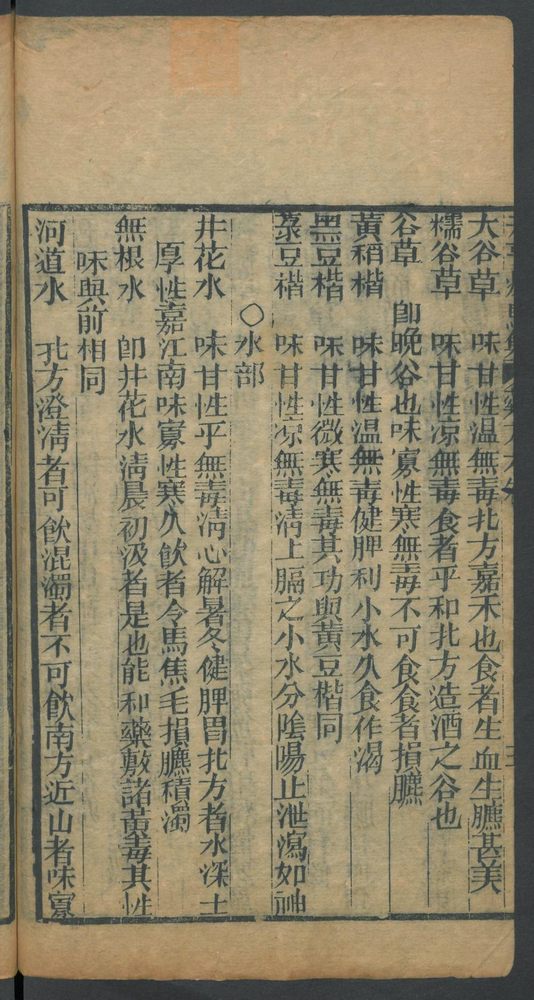 大谷草　味甘性温無毒北方嘉禾也食者生血生臕甚美
糯谷草　味甘性凉無毒食者平和北方造酒之谷也
谷草　即晚谷也味寡性寒無毒不可食食者損臕
黃稍楷　味甘性温無毒健脾利小水久食作渴
黑豆楷　味甘性微寒無毒其功與黃豆楷同
菉豆楷　味甘性凉無毒清上膈之小水分陰陽止泄瀉如神
〇水部
井花水　味甘性平無毒清心解暑冬健脾胃北方者水深土
厚性嘉江南味寡性寒久飲者令馬焦毛損臕積濁
無根水　即井花水清晨初汲者是也能和藥敷諸黃毒其性
味與前相同
河道水　北方澄清者可飲混濁者不可飲南方近山者味寡